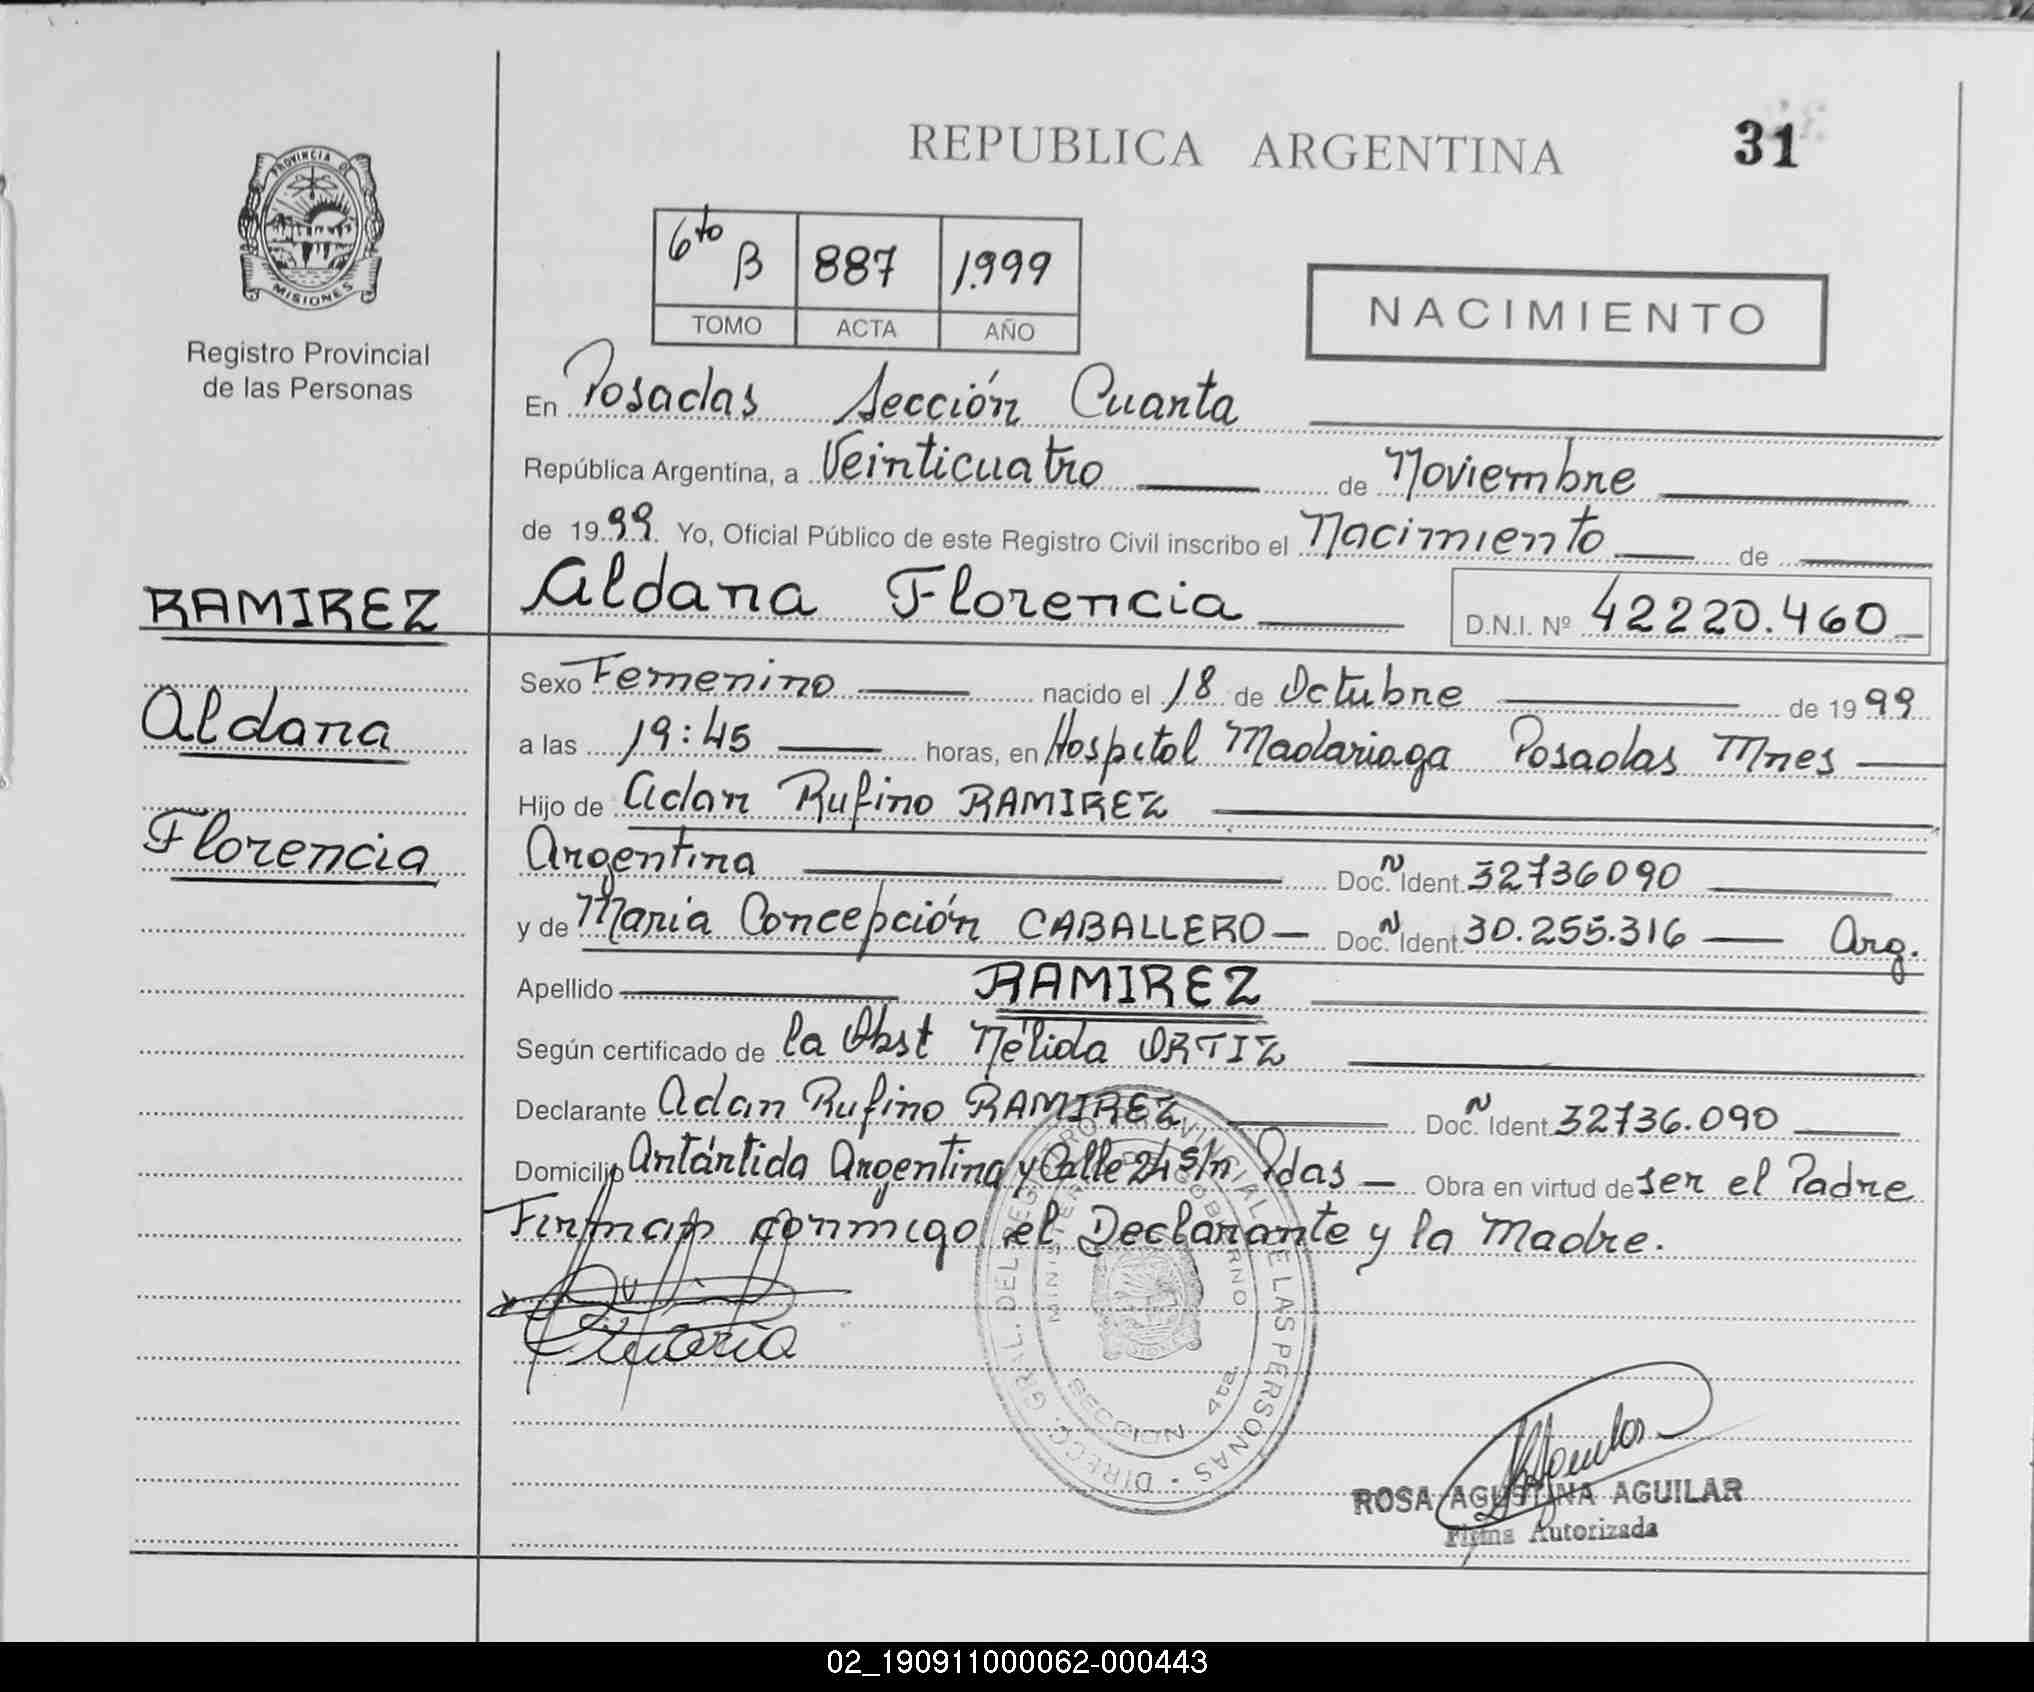 REPUBLICA ARGENTINA
31
PROVINCIA DE
MISIONES
Registro Provincial
de las Personas
6to B 887 1.999
TOMO ACTA AÑO
NACIMIENTO
En Posadas Sección Cuarta
República Argentina, a Veinticuatro de Noviembre
de 1999 Yo, Oficial Público de este Registro Civil inscribo el Nacimiento de
RAMIREZ
Aldana Florencia D.N.I. Nº 42220.460
Sexo Femenino nacido el 18 de Octubre de 1999
Aldana
a las 19:45 horas, en Hospital Madariaga Posadas Mnes
Hijo de Adan Rufino RAMIREZ
Florencia
Argentina Doc. N Ident. 32736090
y de Maria Concepción CABALLERO Doc. N Ident. 30.255.316 Arg.
Apellido RAMIREZ
Según certificado de la Obst Nélida ORTIZ
Declarante Adan Rufino RAMIREZ Doc. N Ident. 32736.090
Domicilio Antártida Argentina y Calle 24 s/n Pdas Obra en virtud de ser el Padre
Firman conmigo el Declarante y la Madre.
DIRECC. GRAL. DEL REGISTRO PROVINCIAL DE LAS PERSONAS
MINISTERIO DE GOBIERNO
MISIONES
SECCION 4ta
Maria
ROSA AGUSTINA AGUILAR
Firma Autorizada
02_190911000062-000443